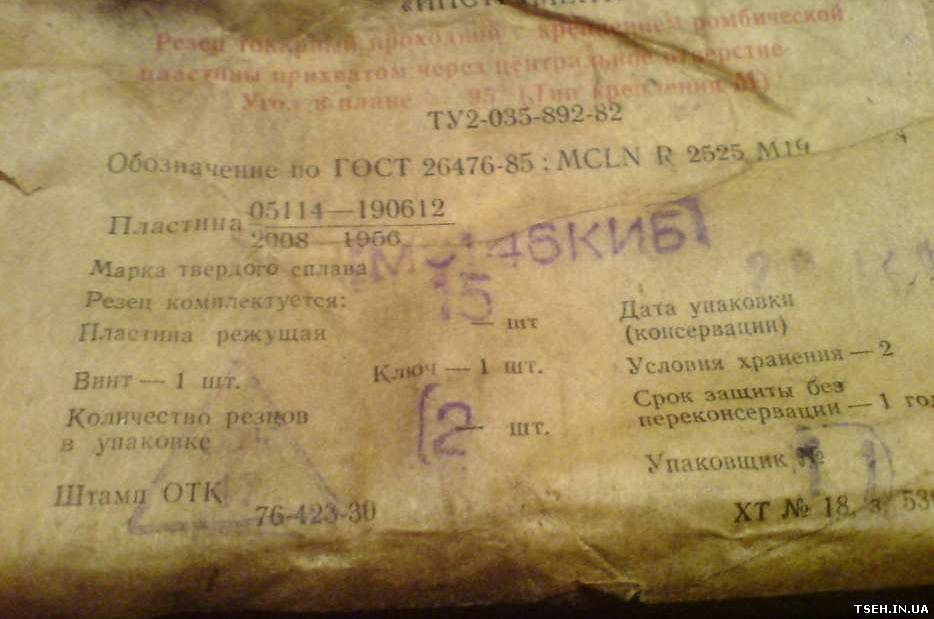 Резец токарный проходной с креплением ромбической
пластины прихватом через центральное отверстие
Угол в плане 95° (Тип крепления М)
ТУ2-035-892-82
Обозначение по ГОСТ 26476-85: MCLN R 2525 M19
Пластина 05114—190612
2008—1956
Марка твердого сплава
Резец комплектуется:
15
Пластина режущая — шт
Винт — 1 шт. Ключ — 1 шт.
Количество резцов
в упаковке 2 — шт.
Штамп ОТК
76-423-30
Дата упаковки
(консервации)
Условия хранения — 2
Срок защиты без
переконсервации — 1
Упаковщик №
ХТ № 18, з.
TSEH.IN.UA